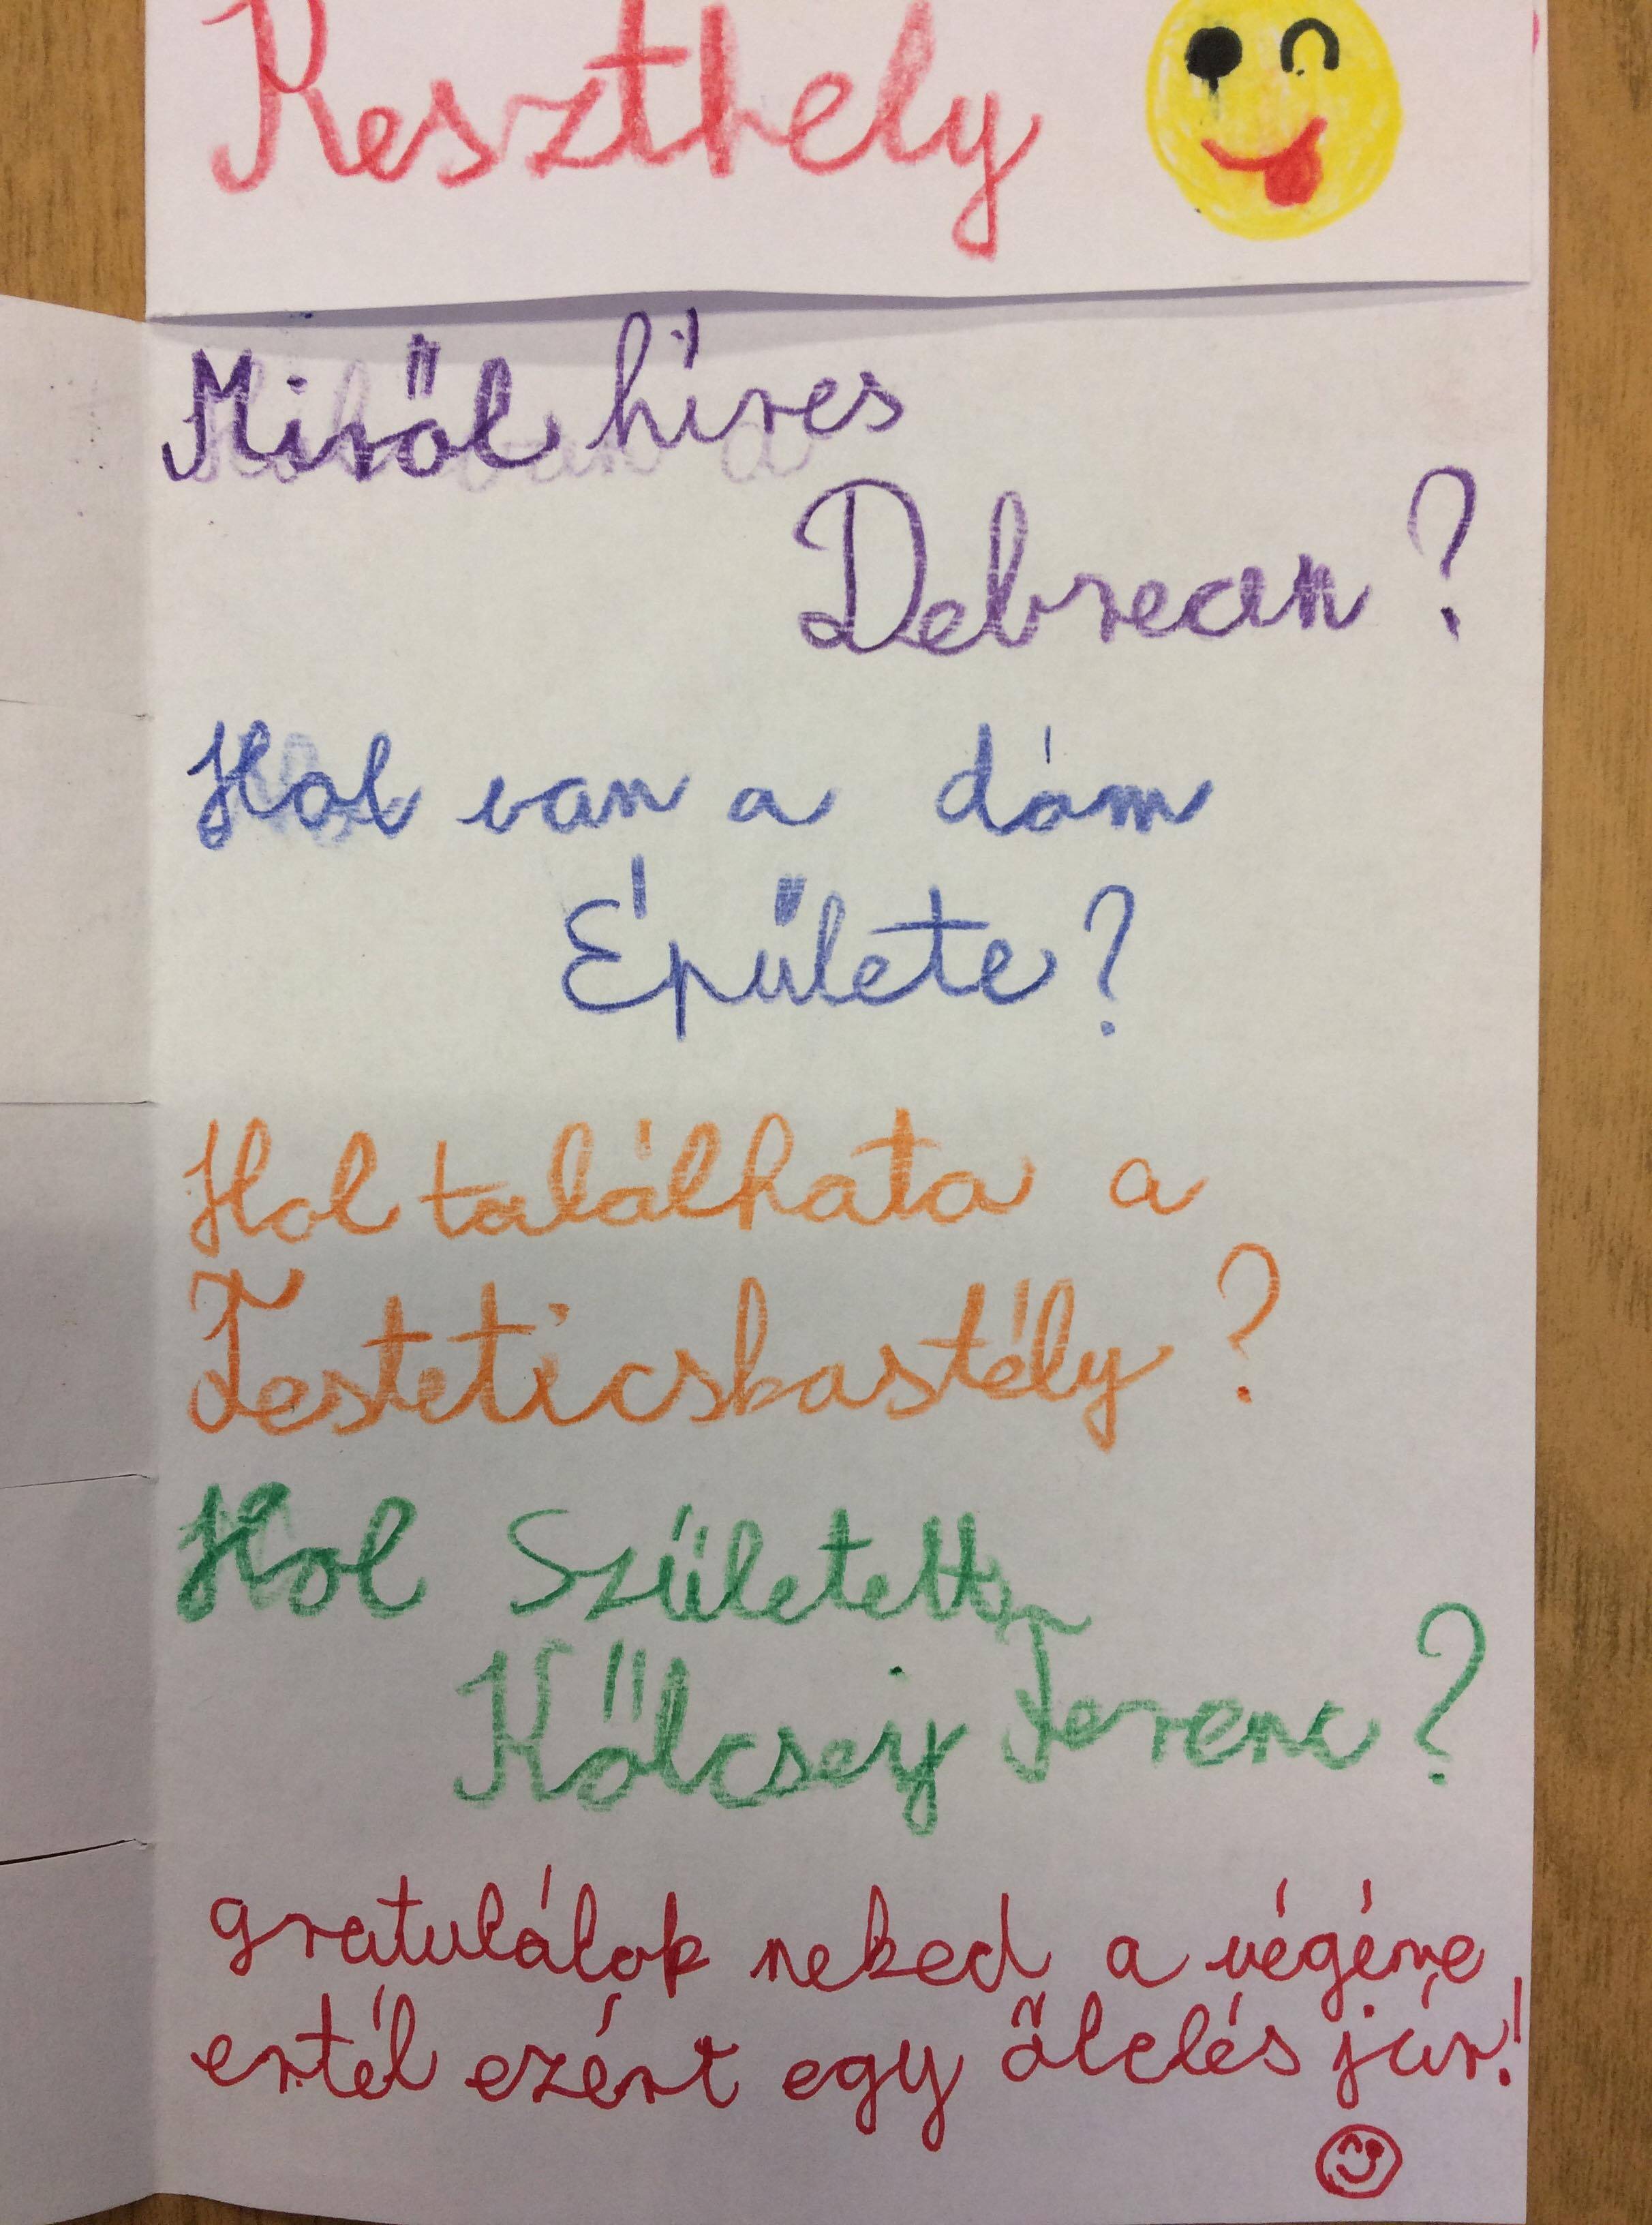 Keszthely
Miről híres
Debrecen?
Hol van a dóm
Épűlete?
Hol találhata a
Festeticskastély?
Hol Született
Kőlcsey Ferenc?
gratulálok neked a végére
ertél ezért egy őlelés jár!